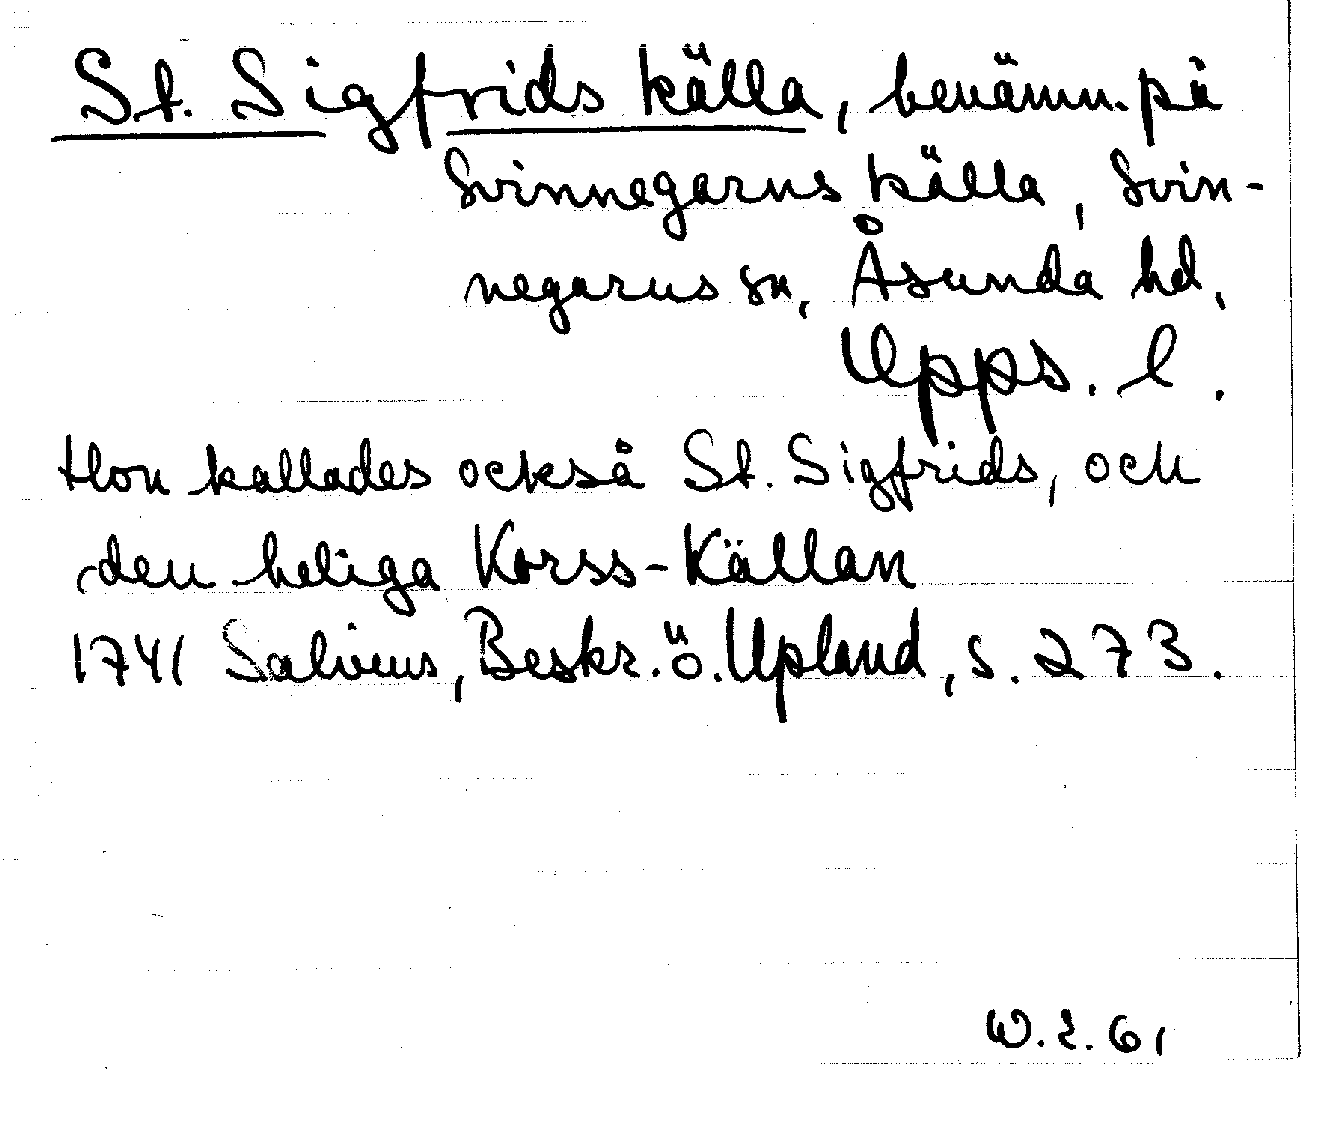 St. Sigfrids källa, benämn. på
Svinnegarns källa, Svin-
negarns sn, Åsunda hd,
Upps. l.
Hon kallades också St. Sigfrids, och
den heliga Korss-Källan
1741 Salvius, Beskr. ö. Upland, s. 273.
W.E. 61